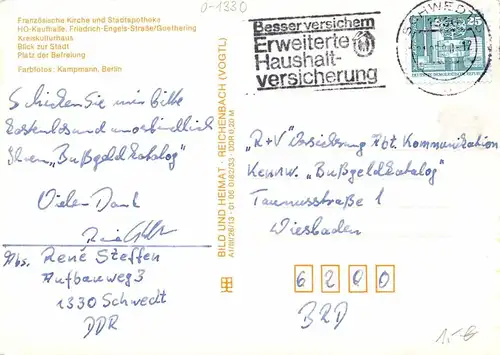 0-1330
Französische Kirche und Stadtapotheke
HO-Kaufhalle, Friedrich-Engels-Straße/Goethering
Kreiskulturhaus
Blick zur Stadt
Platz der Befreiung
Farbfotos: Kampmann, Berlin
Besser versichern
Erweiterte
Haushalt-
versicherung
SCHWEDT
1330
25
Schicken Sie mir bitte
kostenlos und unverbindlich
Ihren „Bußgeldkatalog"
Vielen Dank
Abs. René Steffen
Aufbauweg 3
1330 Schwedt
DDR
BILD UND HEIMAT · REICHENBACH (VOGTL)
A1/B1/26/13 · 01 06 0162/33 · DDR 0,20 M
„R+V" Versicherung Abt. Kommunikation
Kennw. „Bußgeldkatalog"
Taunusstraße 1
Wiesbaden
6200
BRD
1,-